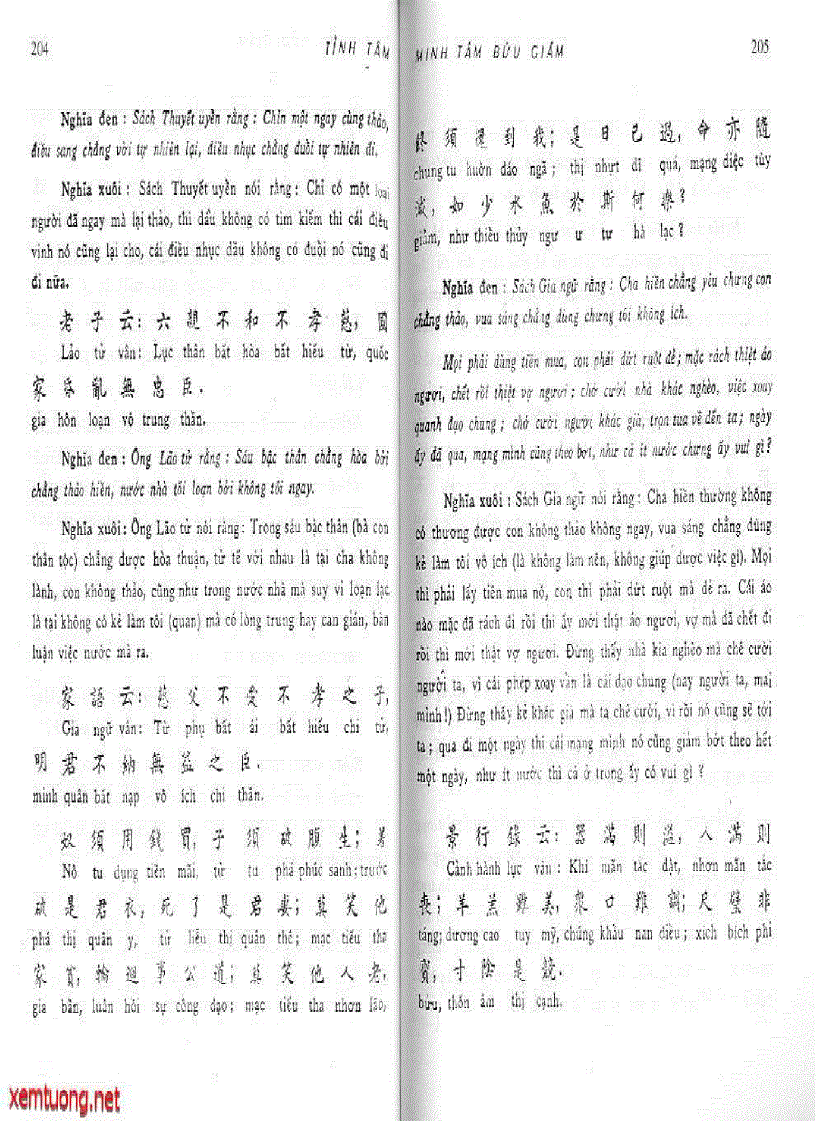 204
TỈNH TÂM
Nghĩa đen : Sách Thuyết uyển rằng : Chỉn một ngay cùng thảo,
điều sang chẳng vời tự nhiên lại, điều nhục chẳng đuổi tự nhiên đi.
Nghĩa xuôi : Sách Thuyết uyển nói rằng : Chỉ có một loại
người đã ngay mà lại thảo, thì dầu không có tìm kiếm thì cái điều
vinh nó cũng lại cho, cái điều nhục dầu không có đuổi nó cũng đi
đi nữa.
老子云：六親不和不孝慈，國
Lảo tử vân : Lục thân bất hòa bất hiếu từ, quốc
家昏亂無忠臣．
gia hôn loạn vô trung thần.
Nghĩa đen : Ông Lão tử rằng : Sáu bậc thân chẳng hòa bởi
chẳng thảo hiền, nước nhà tối loạn bởi không tôi ngay.
Nghĩa xuôi : Ông Lão tử nói rằng : Trong sáu bậc thân (bà con
thân tộc) chẳng được hòa thuận, tử tế với nhau là tại cha không
lành, con không thảo, cũng như trong nước nhà mà suy vi loạn lạc
là tại không có kẻ làm tôi (quan) mà có lòng trung hay can gián, bàn
luận việc nước mà ra.
家語云：慈父不愛不孝之子，
Gia ngữ vân : Từ phụ bất ái bất hiếu chi tử,
明君不納無益之臣．
minh quân bất nạp vô ích chi thần.
奴須用錢買，子須破腹生；著
Nô tu dụng tiền mãi, tử tu phá phúc sanh ; trước
破是君衣，死了是君妻；莫笑他
phá thị quân y, tử liễu thị quân thê ; mạc tiếu tha
家貧，輪迴事公道；莫笑他人老，
gia bần, luân hồi sự công đạo ; mạc tiếu tha nhơn lão,
MINH TÂM BỬU GIÁM
205
終須還到我；是日已過，命亦隨
chung tu huờn đáo ngã ; thị nhựt dĩ quá, mạng diệc tùy
減，如少水魚於斯何樂？
giảm, như thiểu thủy ngư ư tư hà lạc ?
Nghĩa đen : Sách Gia ngữ rằng : Cha hiền chẳng yêu chưng con
chẳng thảo, vua sáng chẳng dùng chưng tôi không ích.
Mọi phải dùng tiền mua, con phải dứt ruột đẻ ; mặc rách thiệt áo
ngươi, chết rồi thiệt vợ ngươi ; chớ cười nhà khác nghèo, việc xoay
quanh đạo chung ; chớ cười người khác già, trọn tua về đến ta ; ngày
ấy đã qua, mạng mình cũng theo bớt, như cá ít nước chưng ấy vui gì ?
Nghĩa xuôi : Sách Gia ngữ nói rằng : Cha hiền thường không
có thương được con không thảo không ngay, vua sáng chẳng dùng
kẻ làm tôi vô ích (là không làm nên, không giúp được việc gì). Mọi
thì phải lấy tiền mua nó, con thì phải dứt ruột mà đẻ ra. Cái áo
nào mặc đã rách đi rồi thì ấy mới thật áo ngươi, vợ mà đã chết đi
rồi thì mới thật vợ ngươi. Đừng thấy nhà kia nghèo mà chê cười
người ta, vì cái phép xoay vần là cái đạo chung (nay người ta, mai
mình !) Đừng thấy kẻ khác già mà ta chê cười, vì rồi nó cũng sẽ tới
ta ; qua đi một ngày thì cái mạng mình nó cũng giảm bớt theo hết
một ngày, như ít nước thì cá ở trong ấy có vui gì ?
景行錄云：器滿則溢，人滿則
Cảnh hành lục vân : Khí mãn tắc dật, nhơn mãn tắc
喪；羊羔雖美，眾口難調；尺璧非
táng ; dương cao tuy mỹ, chúng khẩu nan điều ; xích bích phi
寶，寸陰是競．
bửu, thốn âm thị cạnh.
xemtuong.net